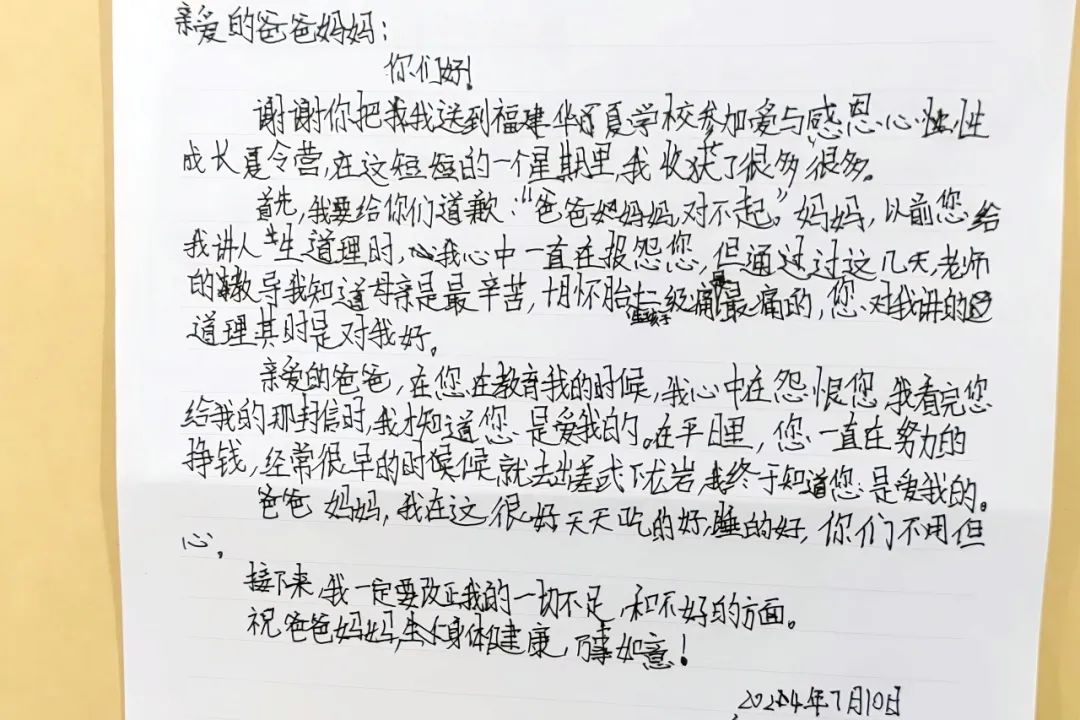 亲爱的爸爸妈妈：
你们好！
谢谢你把我送到福建华夏学校参加爱与感恩心性
成长夏令营，在这短短的一个星期里，我收获了很多很多。
首先，我要给你们道歉：“爸爸妈妈，对不起。”妈妈，以前您给
我讲人生道理时，我心中一直在报怨您，但通过过这几天，老师
的教导我知道母亲是最辛苦，十月怀胎十二级痛是最痛的，您对我讲的
道理其时是对我好。
亲爱的爸爸，在您在教育我的时候，我心中在怨恨您，我看完您
给我的那封信时，我才知道您是爱我的。在平日里，您一直在努力的
挣钱，经常很早的时候候就去出差或下龙岩，我终于知道您是爱我的。
爸爸妈妈，我在这很好天天吃的好，睡的好，你们不用但
心。
接下来，我一定要改正我的一切不足，和不好的方面。
祝爸爸妈妈，身体健康，万事如意！
2024年7月10日